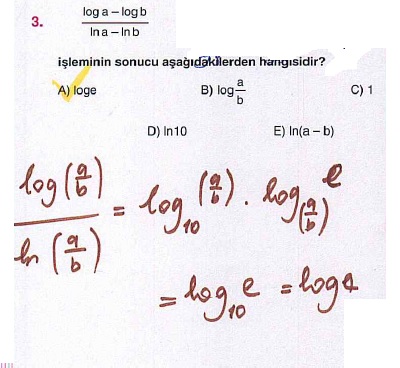 3. log a – log b / ln a – ln b
işleminin sonucu aşağıdakilerden hangisidir?
A) loge B) log a/b C) 1
D) ln10 E) ln(a – b)
log(a/b) / ln(a/b) = log₁₀(a/b) · log₍a/b₎ e
= log₁₀ e = log e